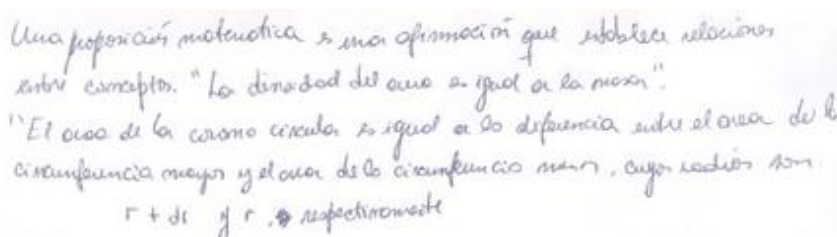 Una proposición matematica es una afirmación que establece relaciones
entre conceptos. "La densidad del aura es igual a la masa".
"El area de la corona circular es igual a la diferencia entre el area de la
circunferencia mayor y el area de la circunferencia menor, cuyos radios son
r + dr y r, respectivamente